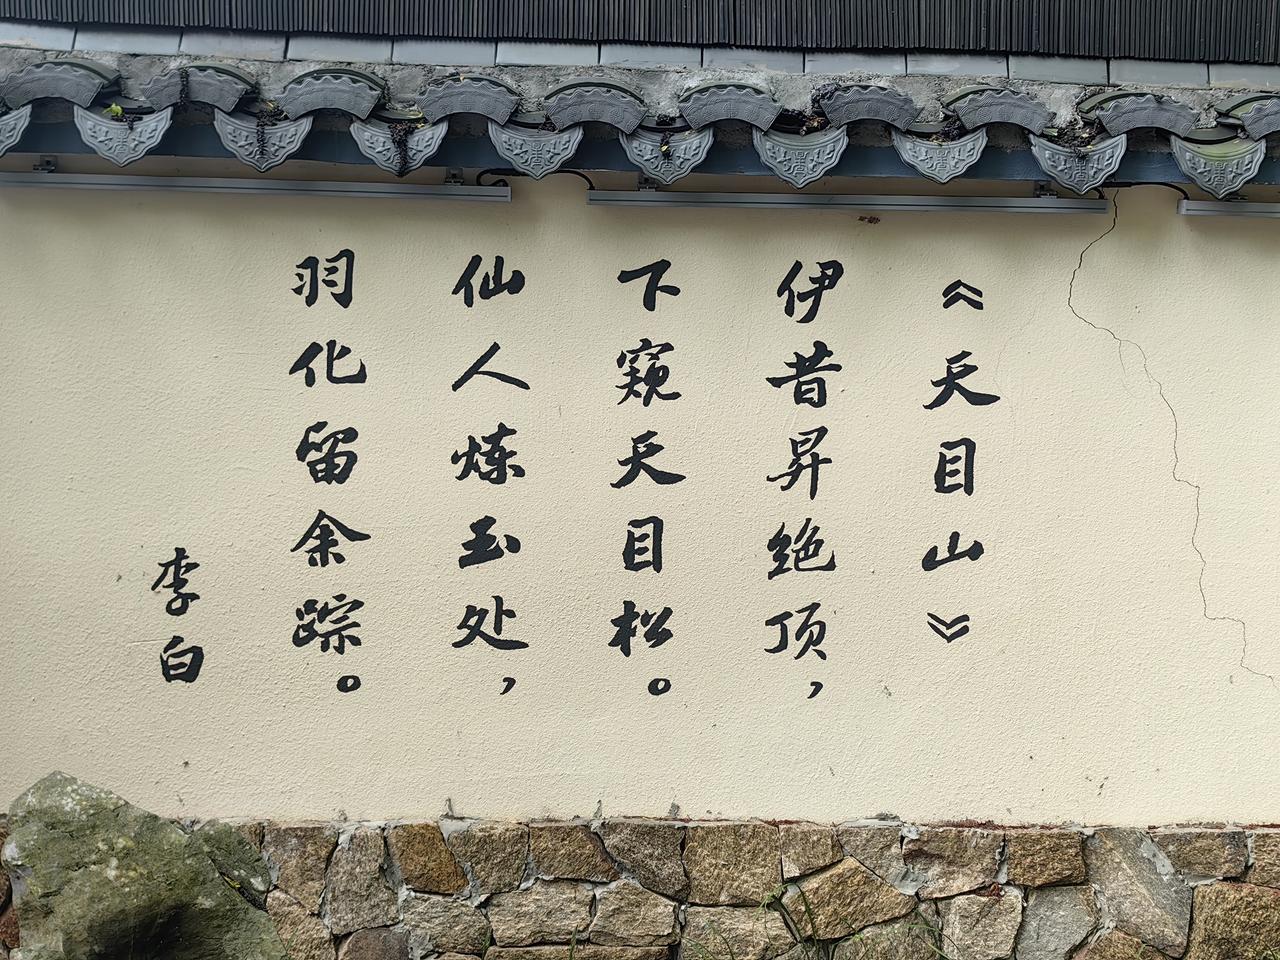 《天目山》
伊昔昇绝顶，
下窥天目松。
仙人炼玉处，
羽化留余踪。
李白